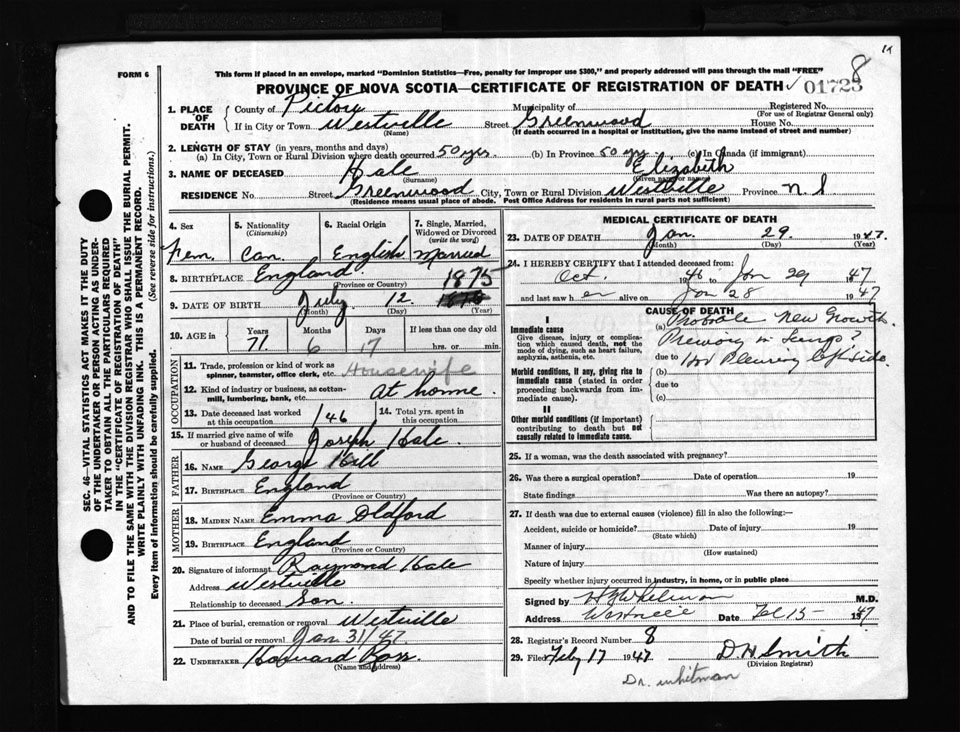 FORM 6
This form if placed in an envelope, marked "Dominion Statistics—Free, penalty for improper use $300," and properly addressed will pass through the mail "FREE"
8
PROVINCE OF NOVA SCOTIA—CERTIFICATE OF REGISTRATION OF DEATH 01723
1. PLACE OF DEATH County of Pictou Municipality of Registered No.
(For use of Registrar General only)
If in City or Town Westville Street Greenwood House No.
(Name) (If death occurred in a hospital or institution, give the name instead of street and number)
2. LENGTH OF STAY (in years, months and days)
(a) In City, Town or Rural Division where death occurred 50 yrs. (b) In Province 50 yrs (c) In Canada (if immigrant)
3. NAME OF DECEASED Hale Elizabeth
(Surname) (Given name or names)
RESIDENCE No. Street Greenwood City, Town or Rural Division Westville Province N.S.
(Residence means usual place of abode. Post Office Address for residents in rural parts not sufficient)
4. Sex 5. Nationality (Citizenship) 6. Racial Origin 7. Single, Married, Widowed or Divorced (write the word)
Fem. Can. English Married
8. BIRTHPLACE England
(Province or Country)
1875
9. DATE OF BIRTH July 12
(Month) (Day) (Year)
10. AGE in Years Months Days If less than one day old
71 6 17 hrs. or min.
OCCUPATION
11. Trade, profession or kind of work as spinner, teamster, office clerk, etc. Housewife
12. Kind of industry or business, as cotton-mill, lumbering, bank, etc. at home.
13. Date deceased last worked at 1/46 14. Total yrs. spent in this occupation
15. If married give name of wife or husband of deceased Joseph Hale.
FATHER
16. NAME George
17. BIRTHPLACE England
(Province or Country)
MOTHER
18. MAIDEN NAME Emma Oldford
19. BIRTHPLACE England
(Province or Country)
20. Signature of informant Raymond Hale
Address Westville
Relationship to deceased Son.
21. Place of burial, cremation or removal Westville
Date of burial or removal Jan 31/47.
22. UNDERTAKER Howard Ross.
(Name and address)
MEDICAL CERTIFICATE OF DEATH
23. DATE OF DEATH Jan. 29. 1947.
(Month) (Day) (Year)
24. I HEREBY CERTIFY that I attended deceased from:
Oct. 1946 to Jan 29 1947
and last saw her alive on Jan 28 1947
CAUSE OF DEATH
I
Immediate cause
Give disease, injury or complication which caused death, not the mode of dying, such as heart failure, asphyxia, asthenia, etc.
(a) Probable New Growth
Primary in Lungs?
due to Pleurisy left side
Morbid conditions, if any, giving rise to immediate cause (stated in order proceeding backwards from immediate cause).
(b)
due to
(c)
II
Other morbid conditions (if important) contributing to death but not causally related to immediate cause.
25. If a woman, was the death associated with pregnancy?
26. Was there a surgical operation? Date of operation 19
State findings Was there an autopsy?
27. If death was due to external causes (violence) fill in also the following:—
Accident, suicide or homicide? Date of injury 19
(State which)
Manner of injury
(How sustained)
Nature of injury
Specify whether injury occurred in industry, in home, or in public place
Signed by Whitman M.D.
Address Westville Date Feb 15 1947
28. Registrar's Record Number 8
29. Filed Feby 17 1947 D.H. Smith
(Division Registrar)
Dr. Whitman
SEC. 46—VITAL STATISTICS ACT MAKES IT THE DUTY
OF THE UNDERTAKER OR PERSON ACTING AS UNDER-
TAKER TO OBTAIN ALL THE PARTICULARS REQUIRED
IN THE "CERTIFICATE OF REGISTRATION OF DEATH"
AND TO FILE THE SAME WITH THE DIVISION REGISTRAR WHO SHALL ISSUE THE BURIAL PERMIT.
WRITE PLAINLY WITH UNFADING INK. THIS IS A PERMANENT RECORD.
Every item of information should be carefully supplied. (See reverse side for instructions.)